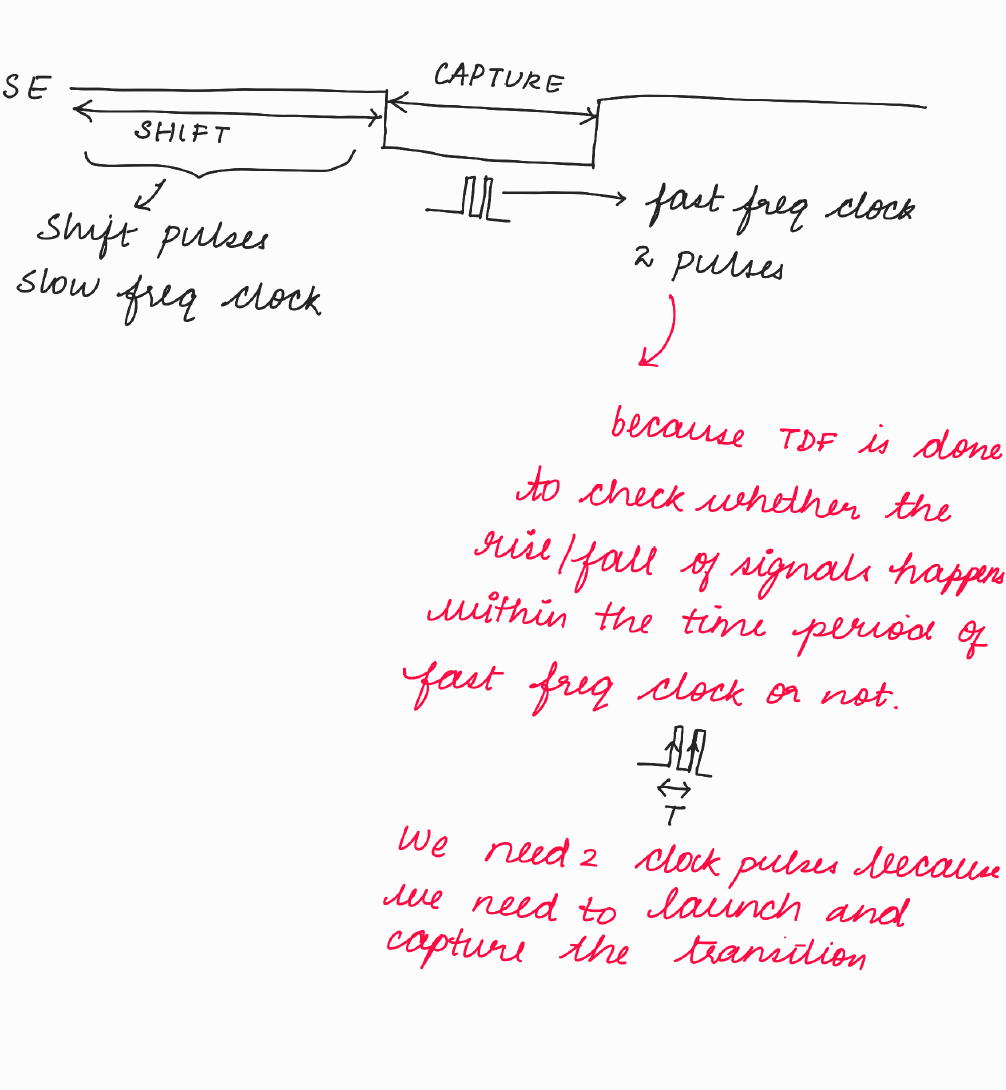 SE
CAPTURE
SHIFT
Shift pulses
slow freq clock
fast freq clock
2 pulses
because TDF is done
to check whether the
rise/fall of signals happens
within the time period of
fast freq clock or not.
T
We need 2 clock pulses because
we need to launch and
capture the transition